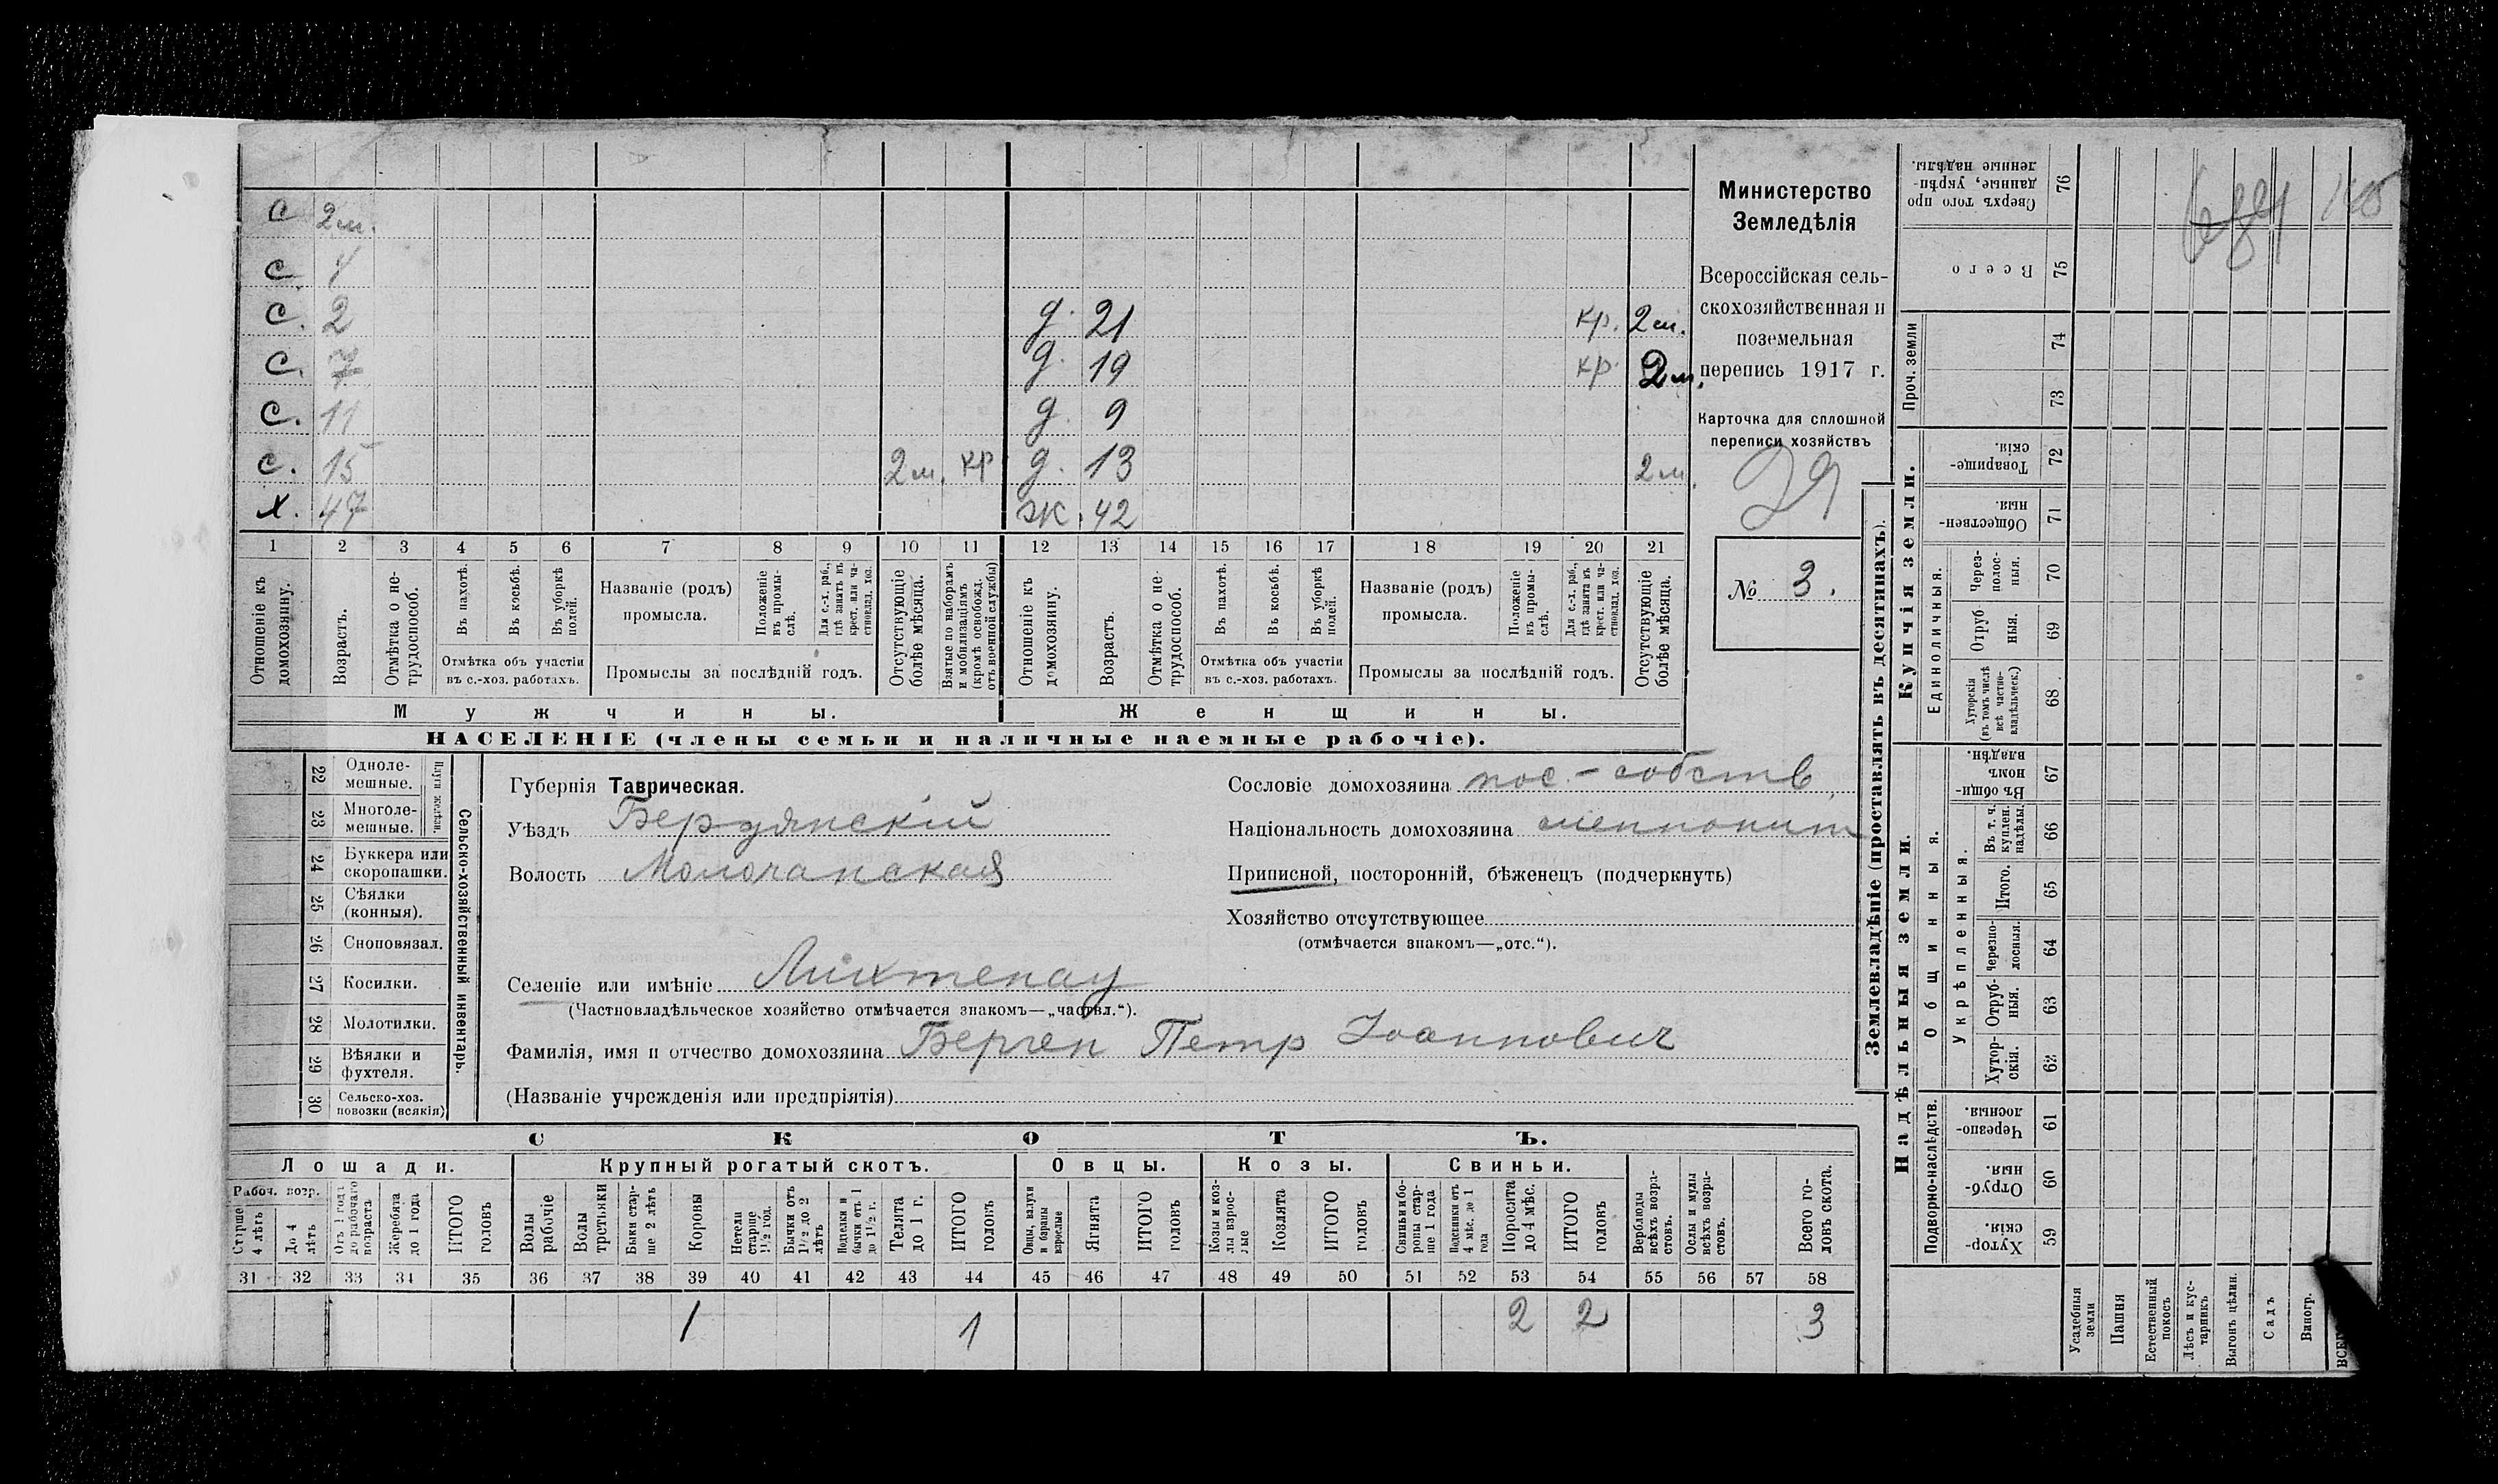 С 2 м.
С. 4
С. 2 д. 21 кр. 2 м.
С. 7 д. 19 кр. 2 м.
С. 11 д. 9
С. 15 2 м. кр д. 13 2 м.
Х. 47 ж. 42
1 2 3 4 5 6 7 8 9 10 11 12 13 14 15 16 17 18 19 20 21
Отношеніе къ домохозяину.
Возрастъ.
Отмѣтка о не-трудоспособ.
Въ пахотѣ.
Въ косьбѣ.
Въ уборкѣ полей.
Отмѣтка объ участіи
въ с.-хоз. работахъ.
Названіе (родъ)
промысла.
Положеніе въ промы-слѣ.
Для с.-х. раб., гдѣ занятъ въ крест. или ча-стновлад. хоз.
Промыслы за послѣдній годъ.
Отсутствующіе болѣе мѣсяца.
Взятые по наборамъ и мобилизаціямъ (кромѣ освобожд. отъ военной службы)
Отношеніе къ домохозяину.
Возрастъ.
Отмѣтка о не-трудоспособ.
Въ пахотѣ.
Въ косьбѣ.
Въ уборкѣ полей.
Отмѣтка объ участіи
въ с.-хоз. работахъ.
Названіе (родъ)
промысла.
Положеніе въ промы-слѣ.
Для с.-х. раб., гдѣ занята въ крест. или ча-стновлад. хоз.
Промыслы за послѣдній годъ.
Отсутствующіе болѣе мѣсяца.
Мужчины.
Женщины.
НАСЕЛЕНІЕ (члены семьи и наличные наемные рабочіе).
Министерство
Земледѣлія
Всероссійская сель-
скохозяйственная и
поземельная
перепись 1917 г.
Карточка для сплошной
переписи хозяйствъ
29
№ 3.
22 Одноле-мешные.
23 Многоле-мешные.
Плуги желѣзн.
24 Буккера или скоропашки.
25 Сѣялки (конныя).
26 Сноповязал.
27 Косилки.
28 Молотилки.
29 Вѣялки и фухтеля.
30 Сельско-хоз. повозки (всякія)
Сельско-хозяйственный инвентарь.
Губернія Таврическая.
Уѣздъ Бердянскій
Волость Молочанская
Сословіе домохозяина пос.-собств.
Національность домохозяина меннонит
Приписной, посторонній, бѣженецъ (подчеркнуть)
Хозяйство отсутствующее
(отмѣчается знакомъ—„отс.“).
Селеніе или имѣніе Лихтенау
(Частновладѣльческое хозяйство отмѣчается знакомъ—„частвл.“).
Фамилія, имя и отчество домохозяина Берген Петр Іоаннович
(Названіе учрежденія или предпріятія)
СКОТЪ.
Лошади. Крупный рогатый скотъ. Овцы. Козы. Свиньи.
Рабоч. возр.
Старше 4 лѣтъ
До 4 лѣтъ
Отъ 1 года до рабочаго возраста
Жеребята до 1 года
ИТОГО головъ
Волы рабочіе
Волы третьяки
Быки стар-ше 2 лѣтъ
Коровы
Нетели старше 1½ год.
Бычки отъ 1½ до 2 лѣтъ
Подтелки и бычки отъ 1 до 1½ г.
Телята до 1 г.
ИТОГО головъ
Овцы, валухи и бараны взрослые
Ягнята
ИТОГО головъ
Козы и коз-лы взрос-лые
Козлята
ИТОГО головъ
Свиньи и бо-ровы стар-ше 1 года
Подсвинки отъ 4 мѣс. до 1 года
Поросята до 4 мѣс.
ИТОГО головъ
Верблюды всѣхъ возра-стовъ.
Ослы и мулы всѣхъ возра-стовъ.
Всего го-ловъ скота.
31 32 33 34 35 36 37 38 39 40 41 42 43 44 45 46 47 48 49 50 51 52 53 54 55 56 57 58
1 1 2 2 3
Землевладѣніе (проставлять въ десятинахъ).
Надѣльныя земли.
Купчія земли.
Проч. земли
Подворно-наслѣдств.
Общинныя.
Укрѣпленныя.
Единоличныя.
Сверхъ того про данные, укрѣп-ленные надѣлы. 76
Всего 75
74
73
Товарище-скія. 72
Обществен-ныя. 71
Через-полос-ныя. 70
Отруб-ныя. 69
Хуторскія (въ томъ числѣ всѣ частно-владѣльческ.) 68
Въ общи-номъ владѣн. 67
Въ т. ч. куплен. надѣлы. 66
Итого. 65
Черезпо-лосныя. 64
Отруб-ныя. 63
Хутор-скія. 62
Черезпо-лосныя. 61
Отруб-ныя. 60
Хутор-скія. 59
Усадебныя земли
Пашня
Естественный покосъ
Лѣсъ и кус-тарникъ
Выгонъ цѣлин.
Садъ
Виногр.